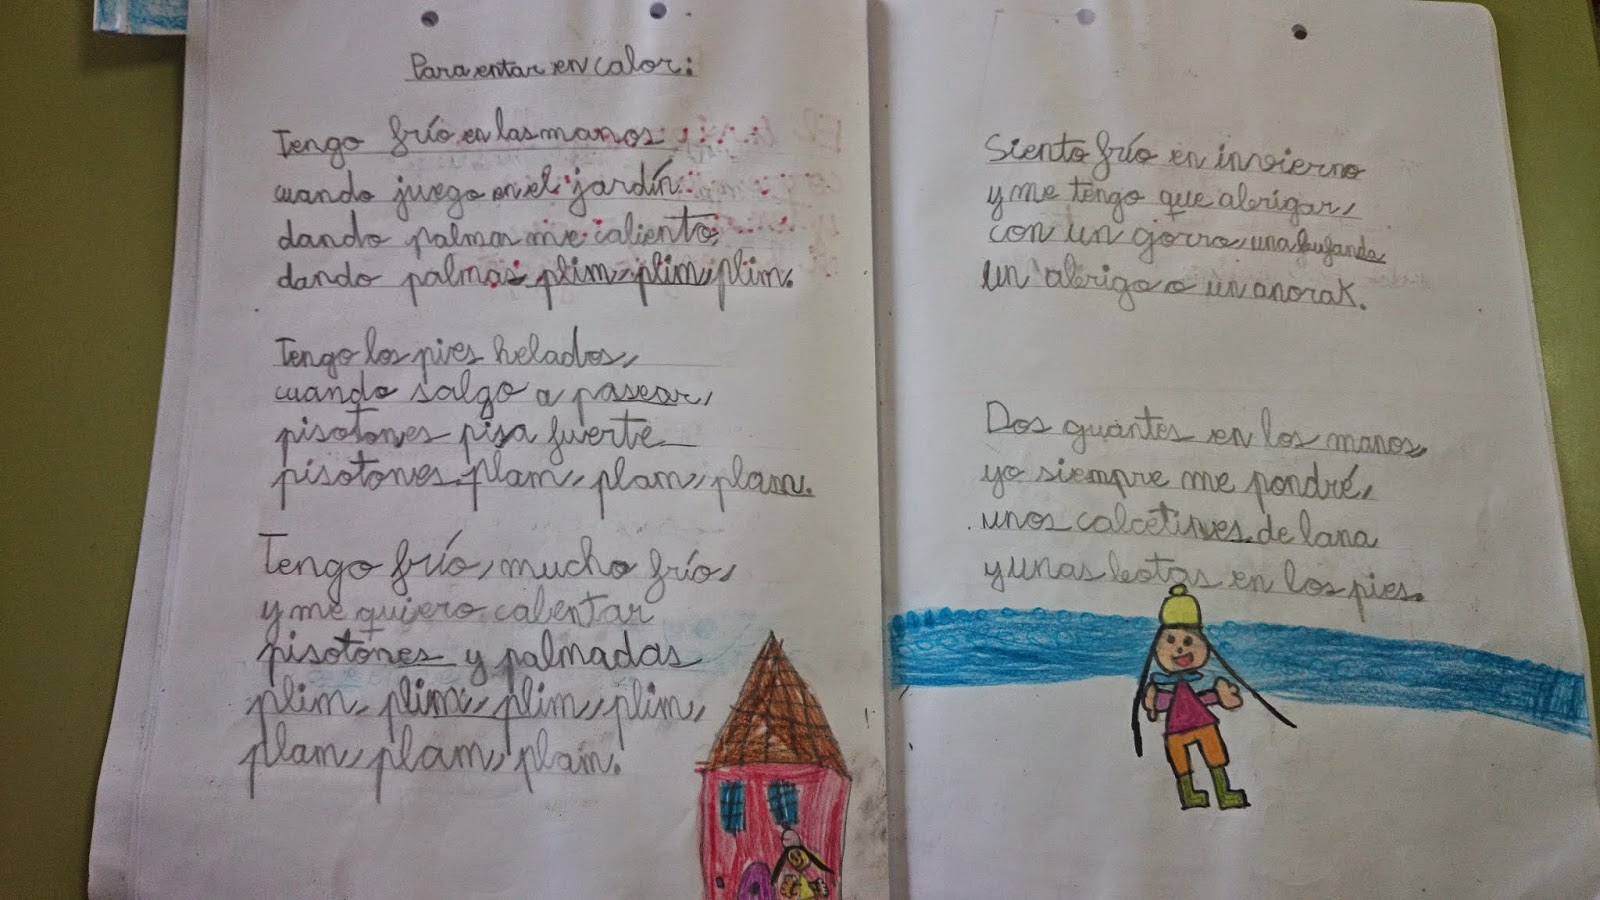 Para entar en calor:
Tengo frío en las manos
cuando juego en el jardín
dando palmas me caliento,
dando palmas plim, plim, plim.
Tengo los pies helados,
cuando salgo a pasear,
pisotones pisa fuerte
pisotones plam, plam, plam.
Tengo frío, mucho frío,
y me quiero calentar
pisotones y palmadas
plim, plim, plim, plim,
plam, plam, plam.
Siento frío en invierno
y me tengo que abrigar,
con un gorro, una bufanda
un abrigo o un anorak.
Dos guantes en los manos,
yo siempre me pondré,
unos calcetines de lana
y unas botas en los pies.